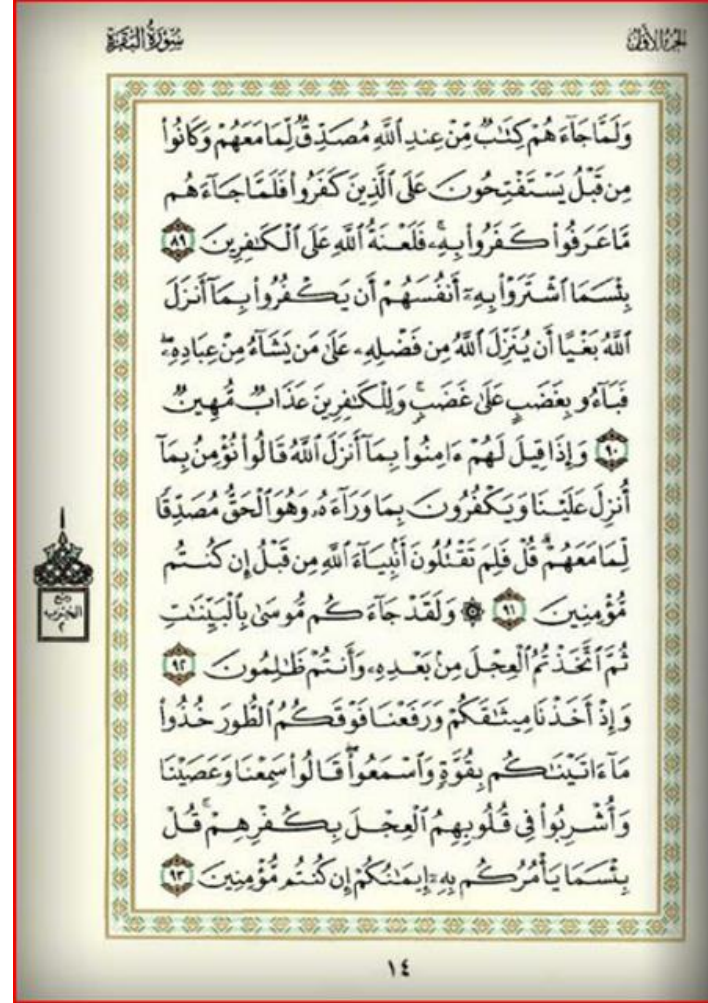 الجزء الأول
سورة البقرة
وَلَمَّا جَآءَهُمْ كِتَٰبٌ مِّنْ عِندِ ٱللَّهِ مُصَدِّقٌ لِّمَا مَعَهُمْ وَكَانُوا۟
مِن قَبْلُ يَسْتَفْتِحُونَ عَلَى ٱلَّذِينَ كَفَرُوا۟ فَلَمَّا جَآءَهُم
مَّا عَرَفُوا۟ كَفَرُوا۟ بِهِۦۚ فَلَعْنَةُ ٱللَّهِ عَلَى ٱلْكَٰفِرِينَ ٨٩
بِئْسَمَا ٱشْتَرَوْا۟ بِهِۦٓ أَنفُسَهُمْ أَن يَكْفُرُوا۟ بِمَآ أَنزَلَ
ٱللَّهُ بَغْيًا أَن يُنَزِّلَ ٱللَّهُ مِن فَضْلِهِۦ عَلَىٰ مَن يَشَآءُ مِنْ عِبَادِهِۦۖ
فَبَآءُو بِغَضَبٍ عَلَىٰ غَضَبٍۚ وَلِلْكَٰفِرِينَ عَذَابٌ مُّهِينٌ
٩٠ وَإِذَا قِيلَ لَهُمْ ءَامِنُوا۟ بِمَآ أَنزَلَ ٱللَّهُ قَالُوا۟ نُؤْمِنُ بِمَآ
أُنزِلَ عَلَيْنَا وَيَكْفُرُونَ بِمَا وَرَآءَهُۥ وَهُوَ ٱلْحَقُّ مُصَدِّقًا
لِّمَا مَعَهُمْۗ قُلْ فَلِمَ تَقْتُلُونَ أَنۢبِيَآءَ ٱللَّهِ مِن قَبْلُ إِن كُنتُم
مُّؤْمِنِينَ ٩١ ۞ وَلَقَدْ جَآءَكُم مُّوسَىٰ بِٱلْبَيِّنَٰتِ
ثُمَّ ٱتَّخَذْتُمُ ٱلْعِجْلَ مِنۢ بَعْدِهِۦ وَأَنتُمْ ظَٰلِمُونَ ٩٢
وَإِذْ أَخَذْنَا مِيثَٰقَكُمْ وَرَفَعْنَا فَوْقَكُمُ ٱلطُّورَ خُذُوا۟
مَآ ءَاتَيْنَٰكُم بِقُوَّةٍ وَٱسْمَعُوا۟ۖ قَالُوا۟ سَمِعْنَا وَعَصَيْنَا
وَأُشْرِبُوا۟ فِى قُلُوبِهِمُ ٱلْعِجْلَ بِكُفْرِهِمْۚ قُلْ
بِئْسَمَا يَأْمُرُكُم بِهِۦٓ إِيمَٰنُكُمْ إِن كُنتُم مُّؤْمِنِينَ ٩٣
ربع
الحزب
٢
١٤